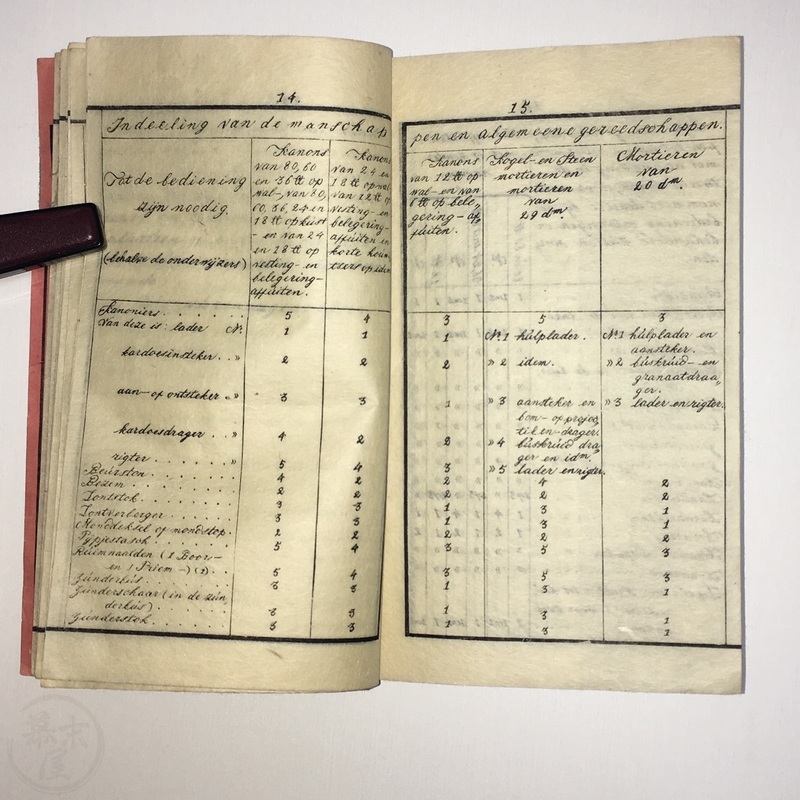 14.
Indeeling van de manschap
Tot de bediening
zijn noodig.
(behalve de onderwijzers)
Kanons
van 80, 60
en 36 ℔ op
wal-, van 80,
60, 36, 24 en
18 ℔ op kust
- en van 24
en 18 ℔ op
vesting- en
belegering-
affuiten.
Kanons
van 24 en
18 ℔ op wal-
van 12 ℔ op
vesting- en
belegering-
affuiten en
korte
Kanoniers . . . . . . 5 4
Van deze is: lader No. 1 1
kardoesinsteker . . » 2 2
aan- of ontsteker . » 3 3
kardoesdrager . . » 4 2
rigter . . . . . » 5 4
Beurston . . . . . . 4 2
Bezem . . . . . . 2 2
Lontstok . . . . . . 3 3
Lontverberger . . . . . 3 3
Monddeksel of mondstop. 2 2
Pijpjestasch . . . . . 5 4
Ruimnaalden (1 Boor-
en 1 Priem-) (1) . . 5 4
Zunderbus . . . . . 3 3
Zunderschaar (in de zun,,
derbus) . . . . . 3 3
Zunderstok . . . . . 3 3
15.
pen en algemeene gereedschappen.
Kanons
van 12 ℔ op
wal- en van
6 ℔ op bele,,
gering- af,,
fuiten.
Kogel- en Steen
mortieren en
mortieren
van
29 dm.
Mortieren
van
20 dm.
3 5 3
1 No. 1 hulplader. No. 1 hulplader en
aansteker.
2 » 2 idem. » 2 buskruid- en
granaatdraa,,
ger.
1 » 3 aansteker en » 3 lader en rigter.
bom- of projec,,
tilen-drager.
2 » 4 buskruid dra,,
ger en idm.
3 » 5 lader en rigter.
2 4 2
2 2 2
1 3 1
1 3 1
2 2 2
3 5 3
3 5 3
1 3 1
1 3 1
1 3 1